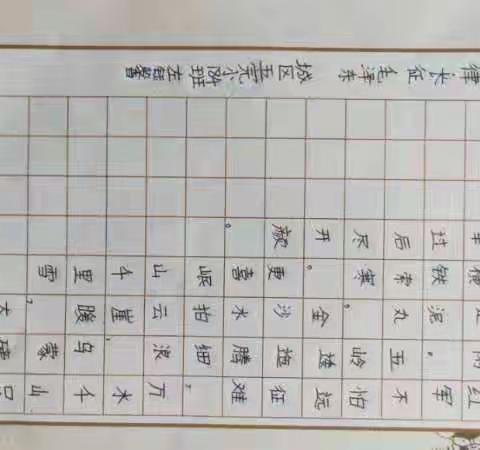 律·长征 毛泽东
城区五完小
红军不怕远征难，万水千山只
闲。五岭逶迤腾细浪，乌蒙磅
走泥丸。金沙水拍云崖暖，大
横铁索寒。更喜岷山千里雪
军过后尽开颜。